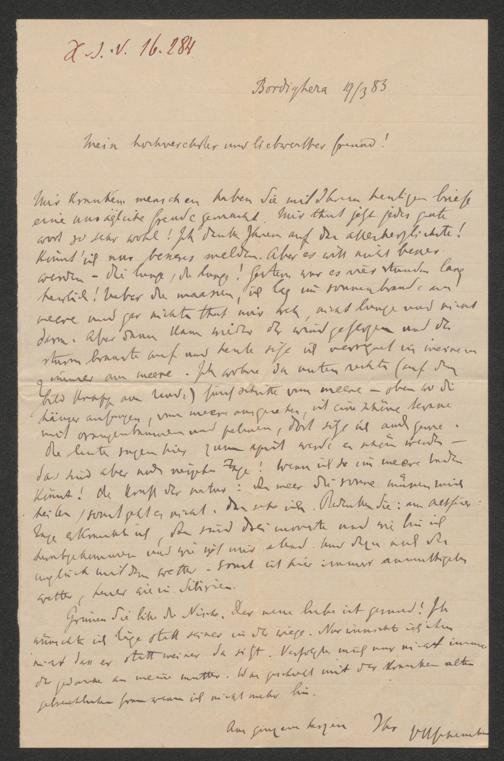 H. I. N. 16.284
Bordighera 19/3 83
Mein hochverehrter und liebwerther Freund!
Mir kranken Menschen haben Sie mit Ihrem heutigen Briefe
eine unsägliche Freude gemacht. Mir thut jetzt jedes gute
Wort so sehr wohl! Ich danke Ihnen auf das allerherzlichste!
Könnt' ich nur besseres melden. Aber es will nicht besser
werden – die Lunge, die Lunge! Gestern war es vier Stunden lang
herrlich! Ueber die Maassen, ich lag im Sonnenbrande am
Meere und gar nichts that mir weh, nicht Lunge und nicht
Darm. Aber dann kam wieder der Wind geflogen und der
Sturm brauste auf und heute sitze ich in meinem
Zimmer am Meere. Ich wohne da unten rechts (auf dem
Bild) fünf Schritte vom Meere – oben wo die
Hänge anfangen, vom Meere, ist eine schöne Terrasse
mit Orangenbäumen und Palmen, dort sitze ich auch gerne.
Die Leute sagen hier, zum April werde es schön werden –
das sind aber noch Tage! Wenn ich so im Meere baden
könnt! Die Kraft der Natur: das Meer die Sonne müssen mich
heilen, sonst geht es nicht. Bedenken Sie: am
Tage erkrankt ich, das sind drei Monate und wie bin ich
heruntergekommen und wie ist mir elend. Und dazu noch das
Unglück mit dem Wetter – sonst ist hier immer
Wetter, heuer wie in Sibirien.
Grüssen Sie die liebe Der neue liebe ist gesund! Ich
wünschte ich läge statt seiner in der Wiege. Nur wünscht ich ihm
nicht dass er statt meiner da sitzt. Verfolgte mich nur nicht immer
der Gedanke an meine Mutter. Was geschieht mit der kranken alten
gebrechlichen Frau wenn ich nicht mehr bin.
Aus ganzem Herzen Ihr